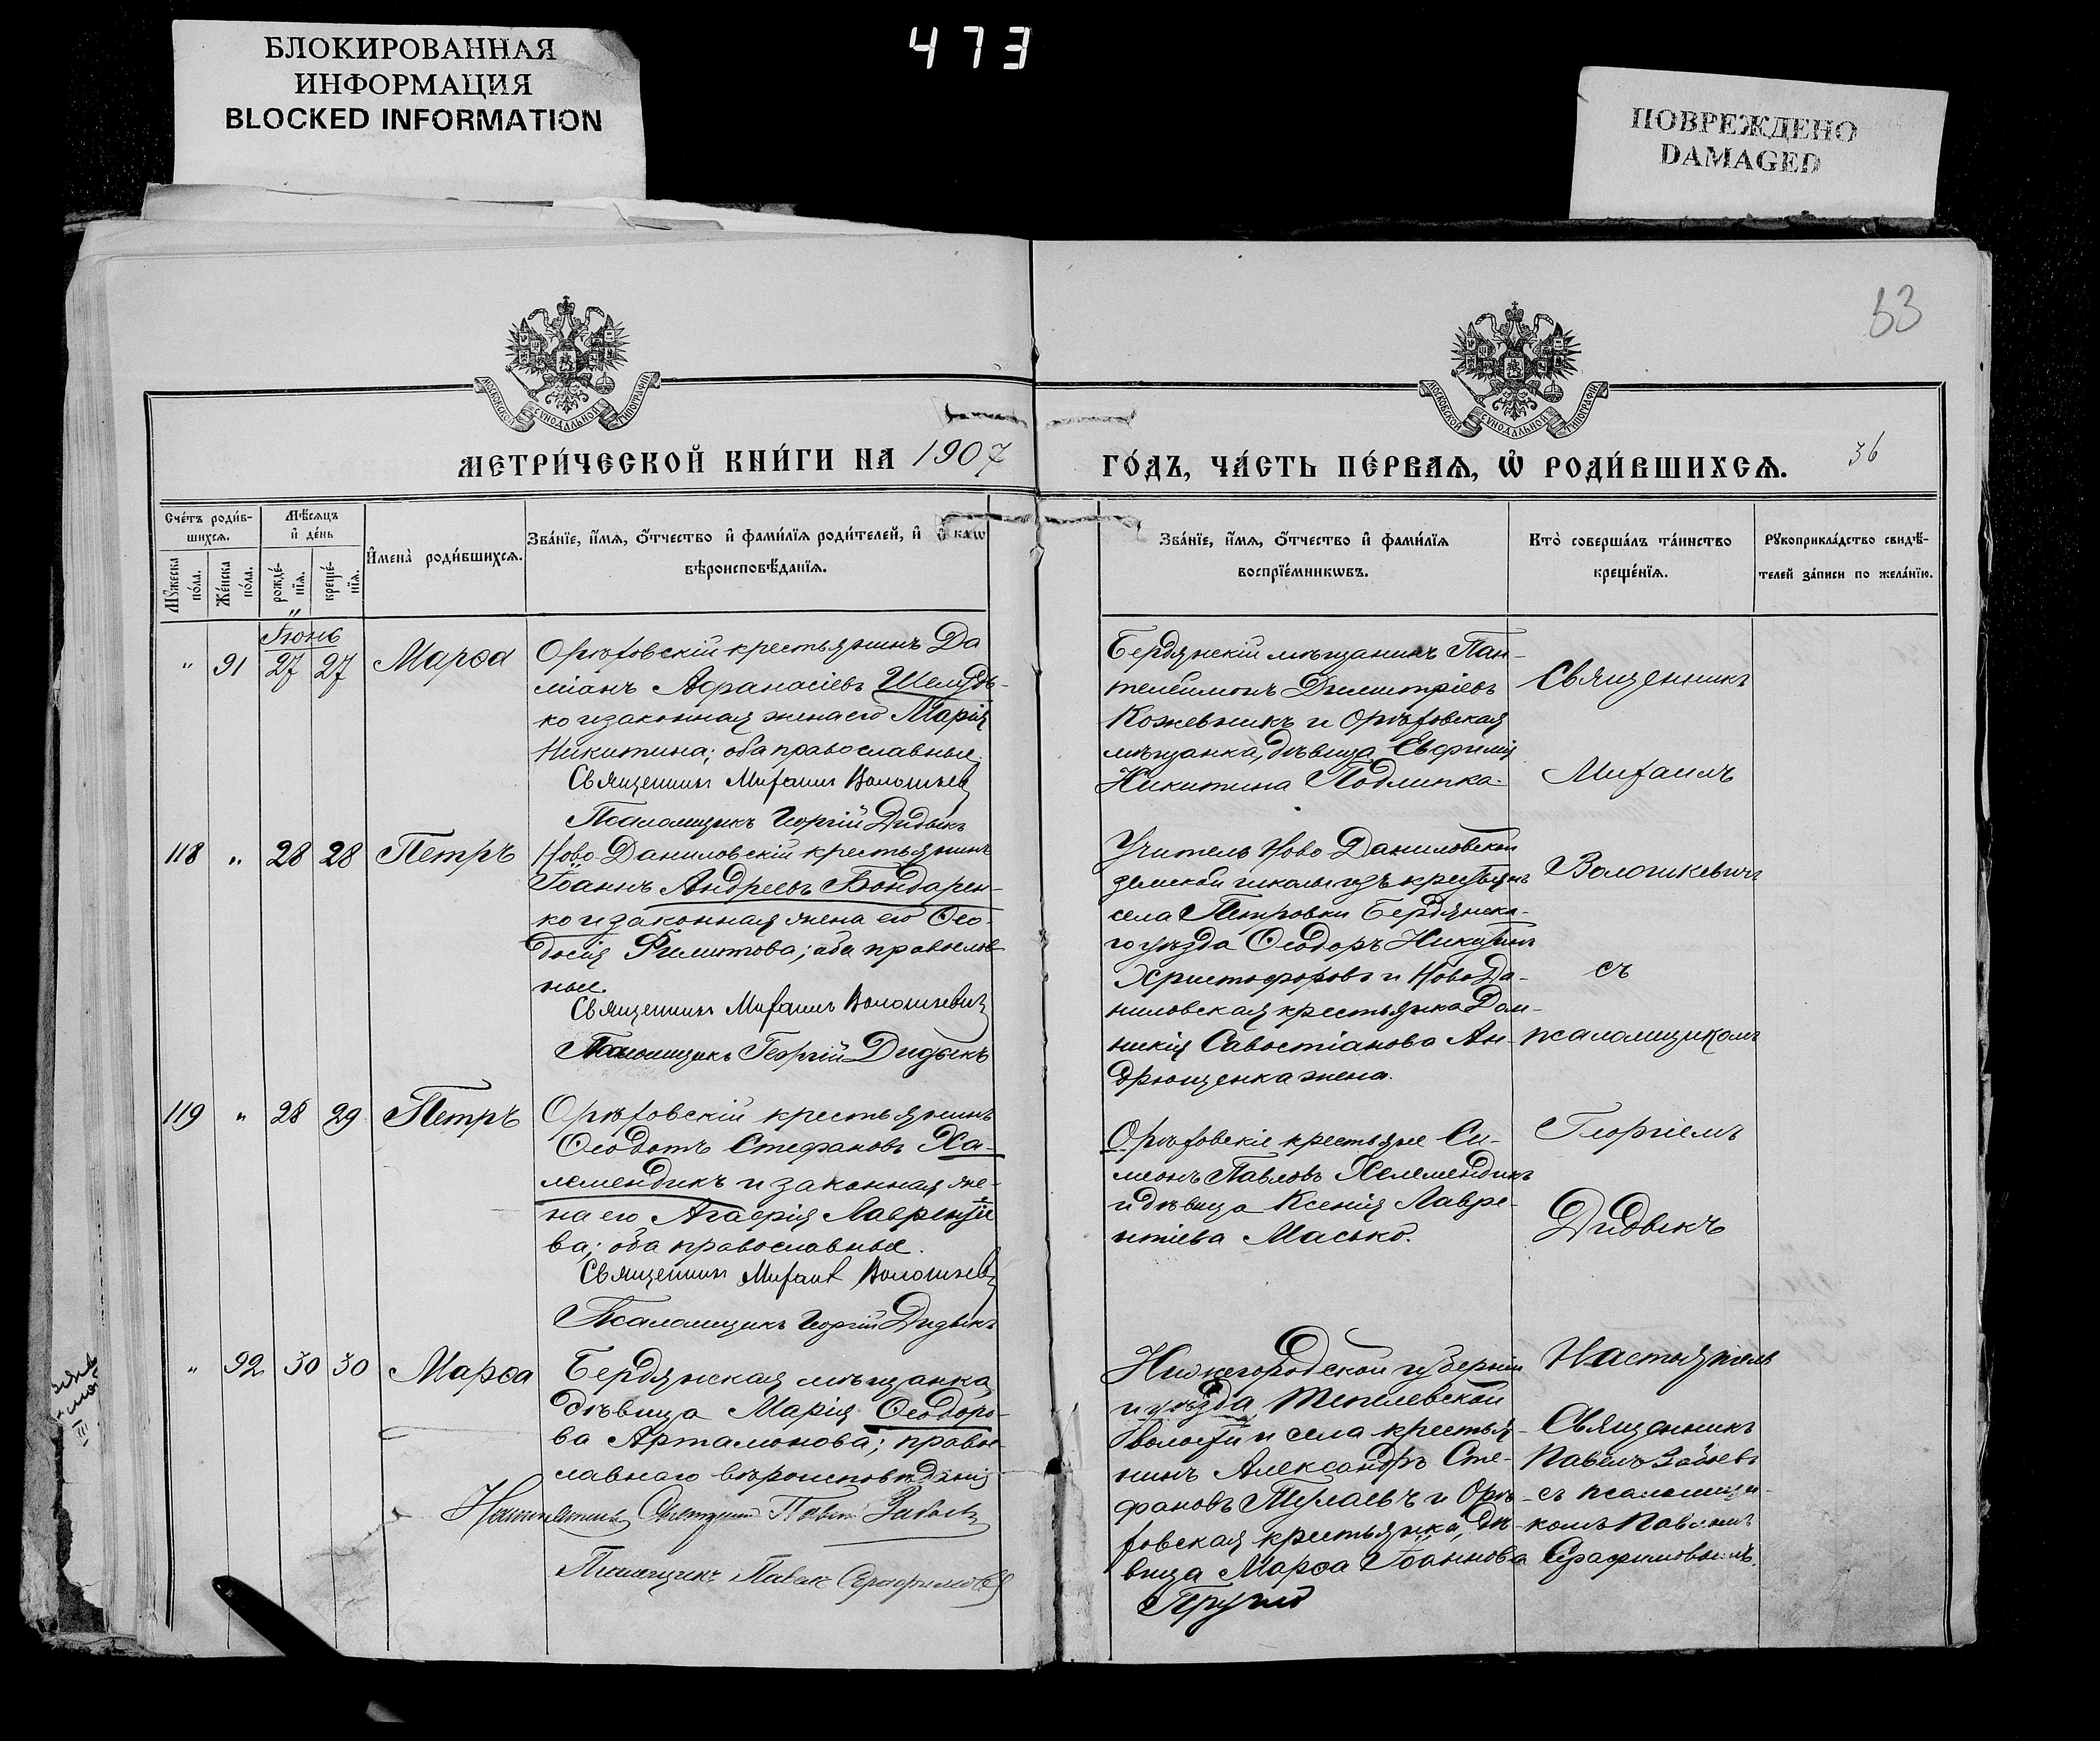 БЛОКИРОВАННАЯ
ИНФОРМАЦИЯ
BLOCKED INFORMATION
473
ПОВРЕЖДЕНО
DAMAGED
53
МОСКОВСКОЙ СѴНОДАЛЬНОЙ ТИПОГРАФІИ
МОСКОВСКОЙ СѴНОДАЛЬНОЙ ТИПОГРАФІИ
МЕТРИ́ЧЕСКОЙ КНИ́ГИ НА 1907
ГО́ДЪ, ЧА́СТЬ ПЕ́РВАѦ, Ѡ҆ РОДИ́ВШИХСѦ.
36
Сче́тъ роди́в-
шихсѧ.
Мѣ́сѧцъ
и҆ де́нь
Мꙋ́жеска по́ла.
Же́нска по́ла.
рожде́-
нїѧ.
креще́-
нїѧ.
И҆мена̀ роди́вшихсѧ.
Зва́нїе, и҆́мѧ, ѻ҆́тчество и҆ фами́лїѧ роди́телей, и҆ како́гѡ
вѣроисповѣ́данїѧ.
Зва́нїе, и҆́мѧ, ѻ҆́тчество и҆ фами́лїѧ
воспрїе́мникѡвъ.
Кто̀ соверша́лъ та́инство
креще́нїѧ.
Рꙋкоприкла́дство свидѣ́-
телей за́писи по жела́нїю.
Іюнь
" 91 27 27 Марѳа
Орѣховскій крестьянинъ Да
міанъ Афанасіевъ Шелудь-
ко и законная жена его Марія
Никитина; оба православные.
Священникъ Михаилъ Волошкев
Псаломщикъ Георгій Дидыкъ
Бердянскій мѣщанинъ Пан-
телеимонъ Димитріевъ
Кожевникъ и Орѣховская
мѣщанка, дѣвица Евфимія
Никитина Подлипка.
Священникъ
Михаилъ
118 " 28 28 Петръ
Ново-Даниловскій крестьянинъ
Іоаннъ Андреевъ Бондарен-
ко и законная жена его Ѳео-
досія Филиппова; оба православ
ные.
Священникъ Михаилъ Волошкевичъ
Псаломщикъ Георгій Дидыкъ
Учитель Ново Даниловской
земской школы изъ крестьянъ
села Петровки Бердянска-
го уѣзда Ѳеодоръ Никитинъ
Христофоровъ и Ново Да-
ниловская крестьянка Дом-
никія Савостіанова Ан-
дрющенка жена.
Волошкевичъ
съ
псаломщикомъ
119 " 28 29 Петръ
Орѣховскій крестьянинъ
Ѳеодотъ Стефановъ Ха-
лемендикъ и законная же-
на его Агафія Лаврентіе
ва; оба православные.
Священникъ Михаилъ Волошкев
Псаломщикъ Георгій Дидыкъ
Орѣховскіе крестьяне Си-
меонъ Павловъ Хелемендикъ
и дѣвица Ксенія Лавре-
нтіева Масько.
Георгіемъ
Дидыкъ
" 92 30 30 Марѳа
Бердянская мѣщанка,
дѣвица Марія Ѳеодоро-
ва Артамонова; право-
славнаго вѣроисповѣданія
Священникъ Павелъ
Псаломщикъ Павелъ Серафимовъ
Нижегородской губерніи
и уѣзда Теплевской
волости и села крестья-
нинъ Александръ Сте-
фановъ Тулаевъ и Орѣ-
ховская крестьянка, дѣ-
вица Марѳа Іоаннова
Настоятель
Священникъ
Павелъ
съ псаломщи-
комъ Павломъ
Серафимовымъ.